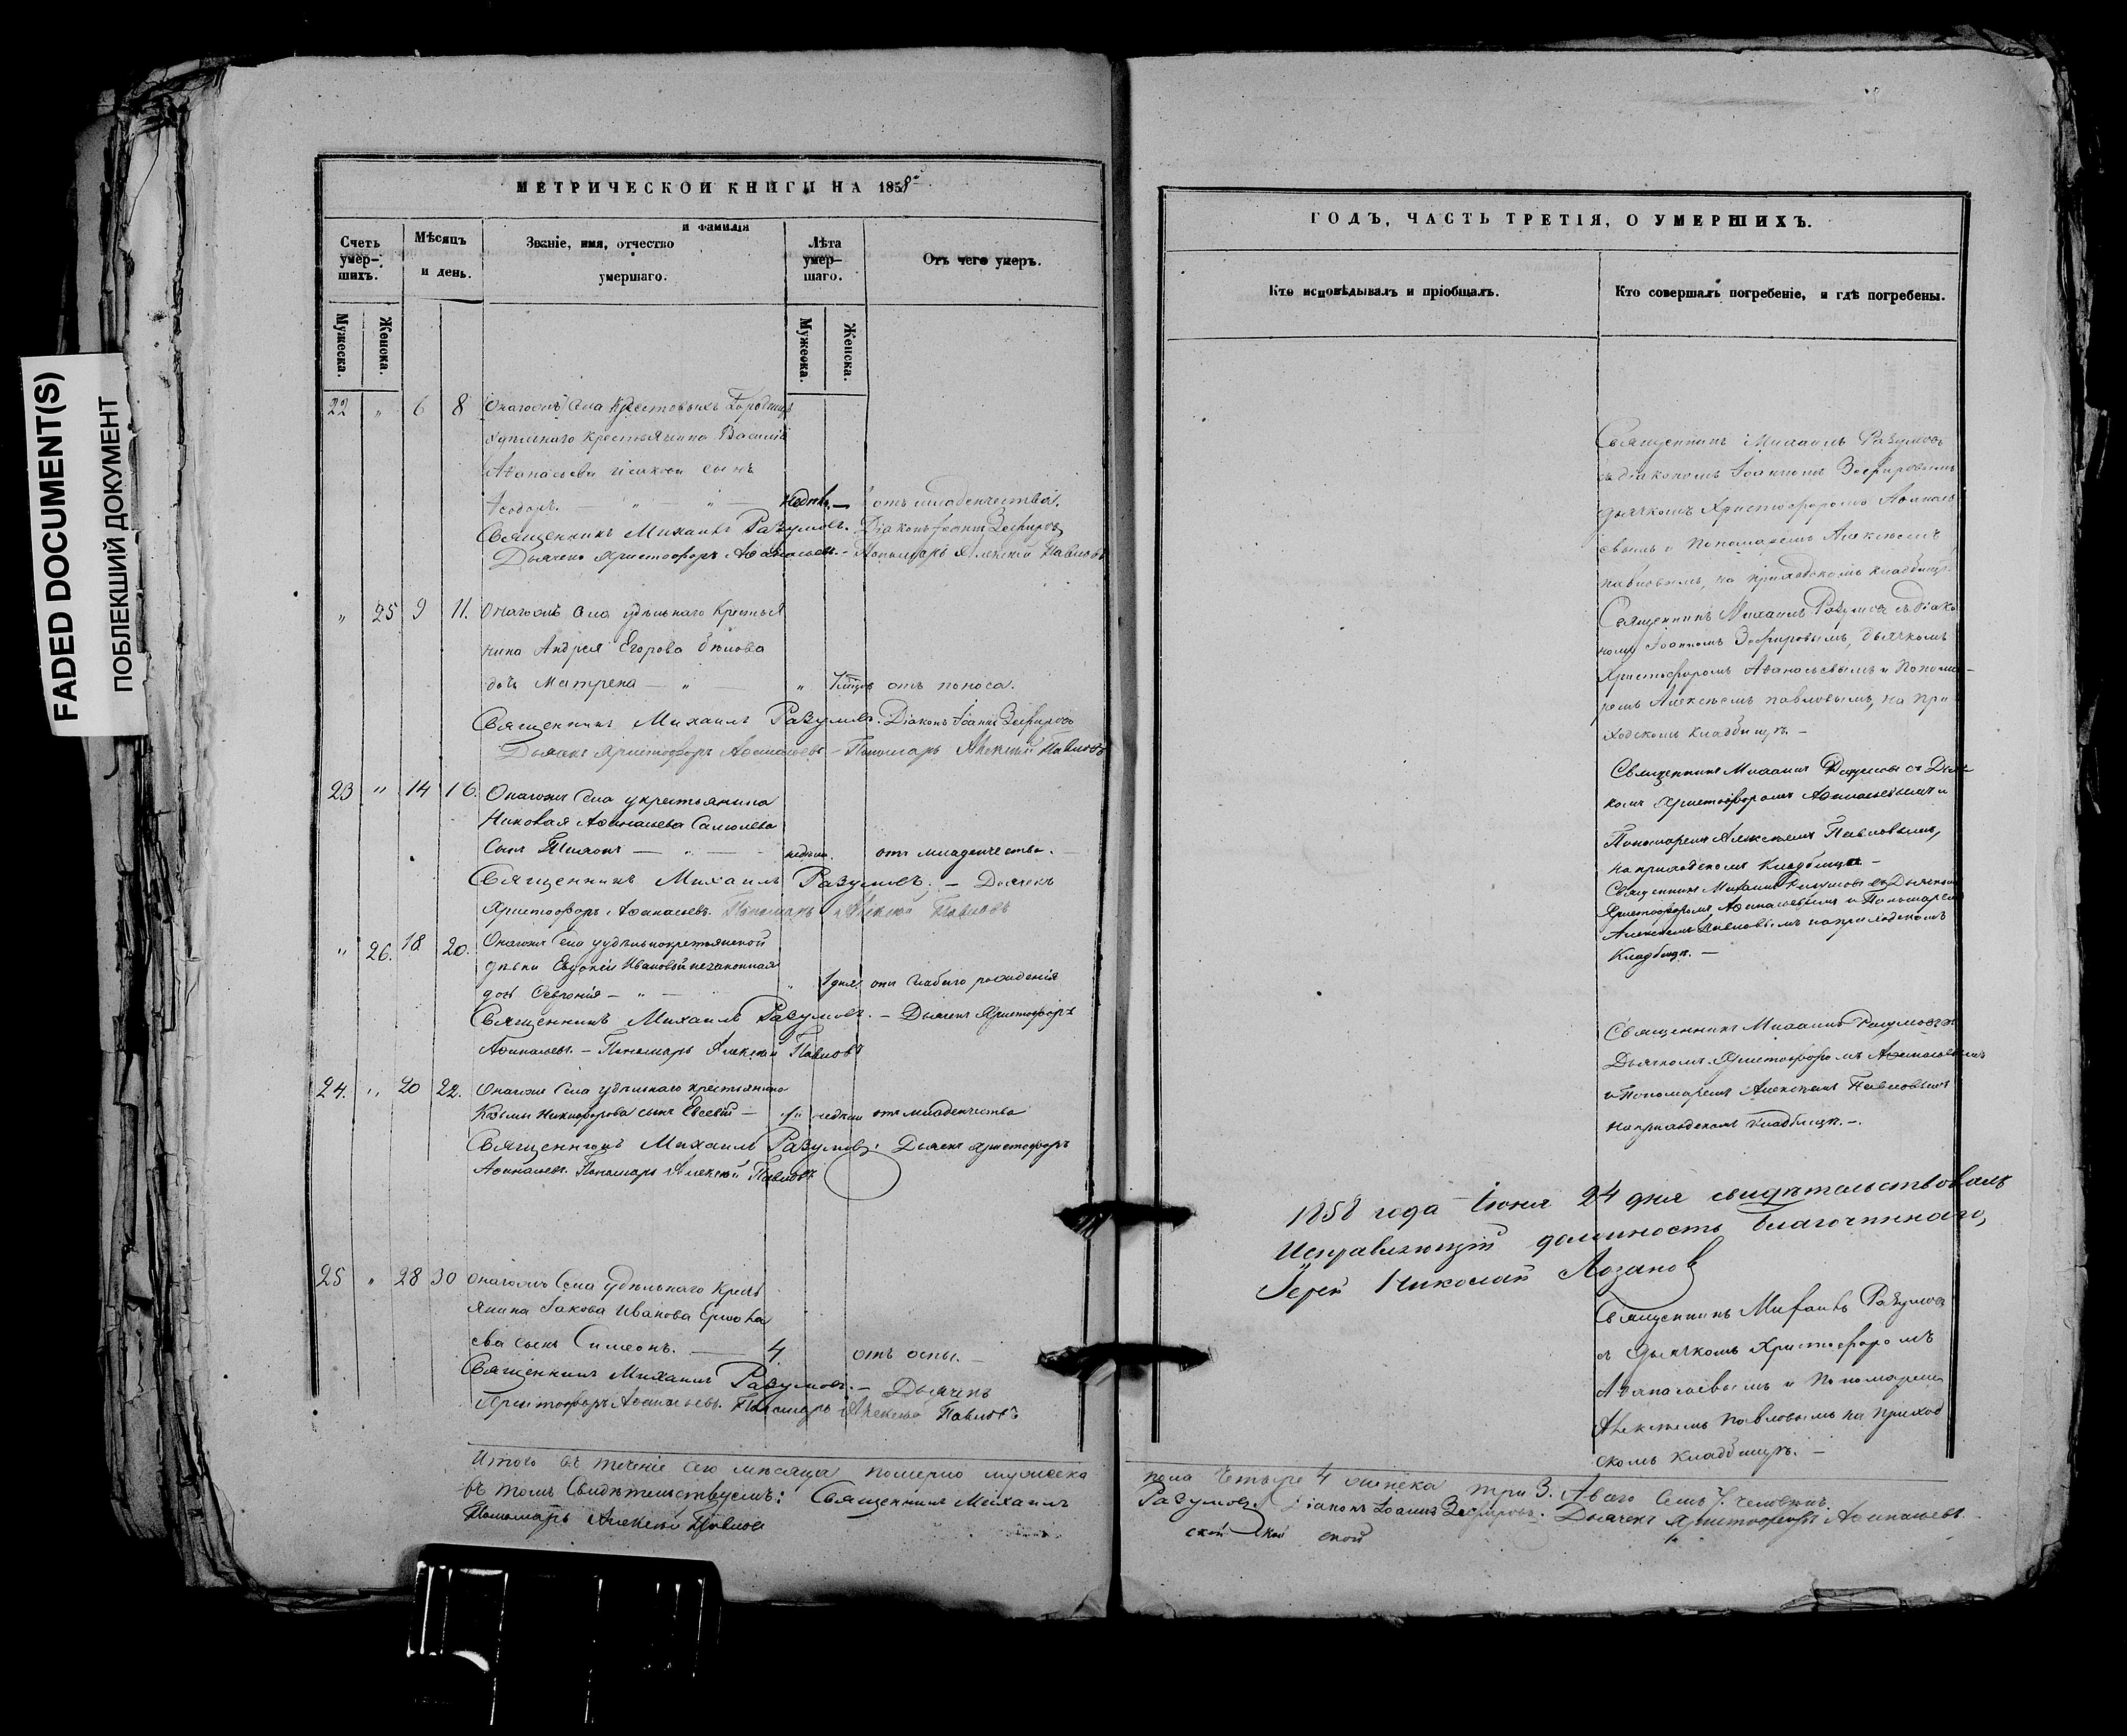 FADED DOCUMENT(S)
ПОБЛЕКШИЙ ДОКУМЕНТ
МЕТРИЧЕСКОЙ КНИГИ НА 1858й
Счетъ умер-шихъ.
Мѣсяцъ и день.
Званіе, имя, отчество и фамилія
умершаго.
Лѣта умер-шаго.
Отъ чего умеръ.
Мужеска.
Женска.
Мужеска.
Женска.
22 " 6 8 Онагожъ Села Крестовыхъ Городищъ
удѣльнаго крестьянина Василія
Аѳанасьева Исакова сынъ
Ѳеодоръ. — " — " — недѣль — отъ младенчества.
Священникъ Михаилъ Разумовъ. Діаконъ Іоаннъ Зефировъ
Дьячекъ Христофоръ Аѳанасьевъ. – Пономарь Алексій Павловъ
" 25 9 11. Онагожъ Села удѣльнаго крестья
нина Андрея Егорова Бѣлова
дочь Матрена — " — " отъ поноса.
Священникъ Михаилъ Разумовъ. Діаконъ Іоаннъ Зефировъ
Дьячекъ Христофоръ Аѳанасьевъ – Пономарь Алексій Павловъ
23 " 14 16. Онагожъ Села у крестьянина
Аѳанасьева
Сынъ Тихонъ — " — недѣль. отъ младенчества.
Священникъ Михаилъ Разумовъ. – Дьячекъ
Христофоръ Аѳанасьевъ. Пономарь Алексій Павловъ
" 26. 18 20. Онагожъ Села у удѣльнокрестьянской
дѣвки Евдокіи Ивановой незаконная
дочь Февронія – " — " 1 дня отъ слабаго рожденія
Священникъ Михаилъ Разумовъ. – Дьячекъ Христофоръ
Аѳанасьевъ. – Пономарь Алексій Павловъ
24. " 20 22. Онагожъ Села удѣльнаго крестьянина
Козьмы Никифорова сынъ Евсевій — недѣли отъ младенчества
Священникъ Михаилъ Разумовъ. Дьячекъ Христофоръ
Аѳанасьевъ. Пономарь Алексій Павловъ
25 " 28 30 Онагожъ Села удѣльнаго Кресть
янина Іакова Иванова
ева сынъ Симеонъ. — 4. отъ оспы. –
Священникъ Михаилъ Разумовъ. – Дьячекъ
Христофоръ Аѳанасьевъ. Пономарь Алексій Павловъ
Итого въ теченіе сего мѣсяца померло мужеска
въ томъ Свидѣтельствуемъ: Священникъ Михаилъ
Пономарь Алексій Павловъ
ГОДЪ, ЧАСТЬ ТРЕТІЯ, О УМЕРШИХЪ.
Кто исповѣдывалъ и пріобщалъ.
Кто совершалъ погребеніе, и гдѣ погребены.
Священникъ Михаилъ Разумовъ
съ діакономъ Іоанномъ Зефировымъ
дьячкомъ Христофоромъ Аѳанась
евымъ и Пономаремъ Алексѣемъ
Павловымъ, на приходскомъ кладбищѣ.
Священникъ Михаилъ Разумовъ съ Діако
номъ Іоанномъ Зефировымъ, дьячкомъ
Христофоромъ Аѳанасьевымъ и Понома-
ремъ Алексѣемъ Павловымъ, на при
ходскомъ кладбищѣ. –
Священникъ Михаилъ Разумовъ съ Дьяч
комъ Христофоромъ Аѳанасьевымъ и
Пономаремъ Алексѣемъ Павловымъ,
на приходскомъ Кладбищѣ –
Священникъ Михаилъ Разумовъ съ Дьячкомъ
Христофоромъ Аѳанасьевымъ и Пономаремъ
Алексѣемъ Павловымъ на приходскомъ
Кладбищѣ. –
Священникъ Михаилъ Разумовъ съ
Дьячкомъ Христофоромъ Аѳанасьевымъ
и Пономаремъ Алексѣемъ Павловымъ
на приходскомъ кладбищѣ. –.
1858 года Іюня 24 дня свидѣтельствовалъ
Исправляющій должность благочиннаго,
Іерей Николай Лозановъ
Священникъ Михаилъ Разумовъ
съ дьячкомъ Христофоромъ
Аѳанасьевымъ и Пономаремъ
Алексѣемъ Павловымъ на приход
скомъ кладбищѣ. –
пола четыре 4 женска три 3. Авсего Семь 7. человѣкъ.
Разумовъ. Діаконъ Іоаннъ Зефировъ. Дьячекъ Христофоръ Аѳанасьевъ.
ской ской ской